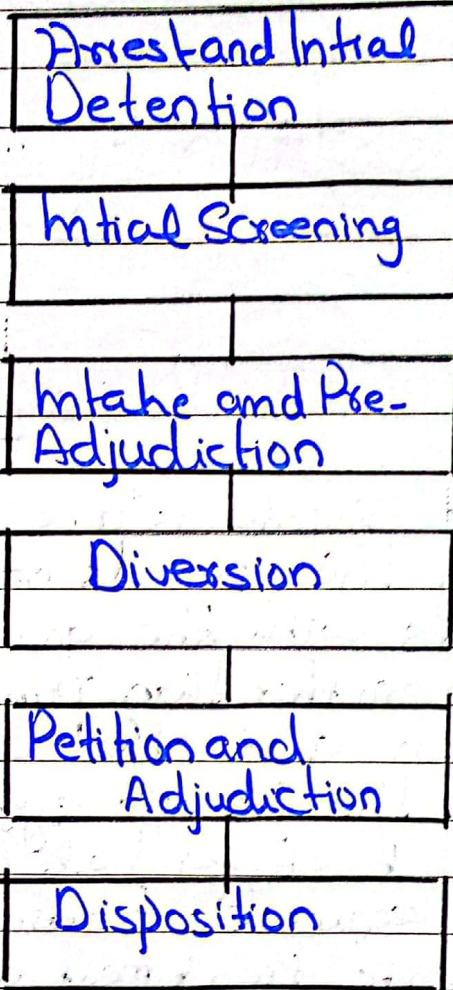 Arrest and Intial
Detention
Intial Screening
Intake and Pre-
Adjudiction
Diversion
Petition and
Adjudiction
Disposition